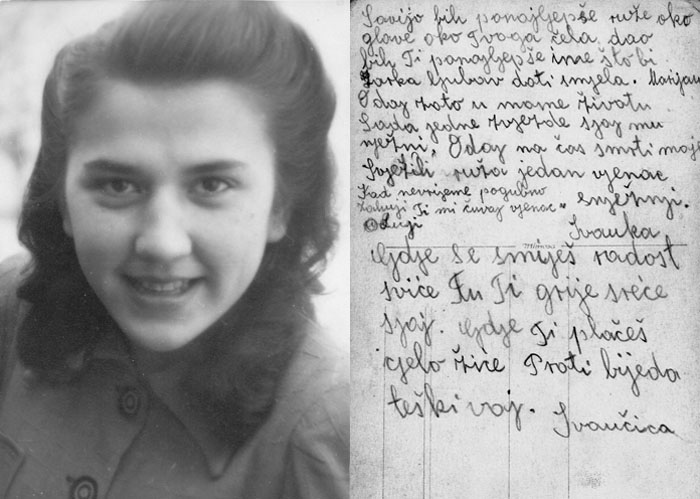 Savijo bih ponajljepše ruže oko
glave oko Tvoga čela dao
bih Ti ponajljepše ime što bi
žarka ljubav dati smjela. Marijan
Odaj zato u mome životu
Sajda jedne zvjezde sjaj mu
nježni, Odaj na čas smrti moje
Svježih ruža jedan vjenac
snježnji.
Kad nevrijeme pogubno
Zahuji Ti mi čuvaj vjenac"
Ivanka
Gdje se smiješ radost
sviće Tu Ti grije sreće
sjaj. Gdje Ti plačeš
cjelo žiće Prati bijeda
teški vaj.
Ivančica